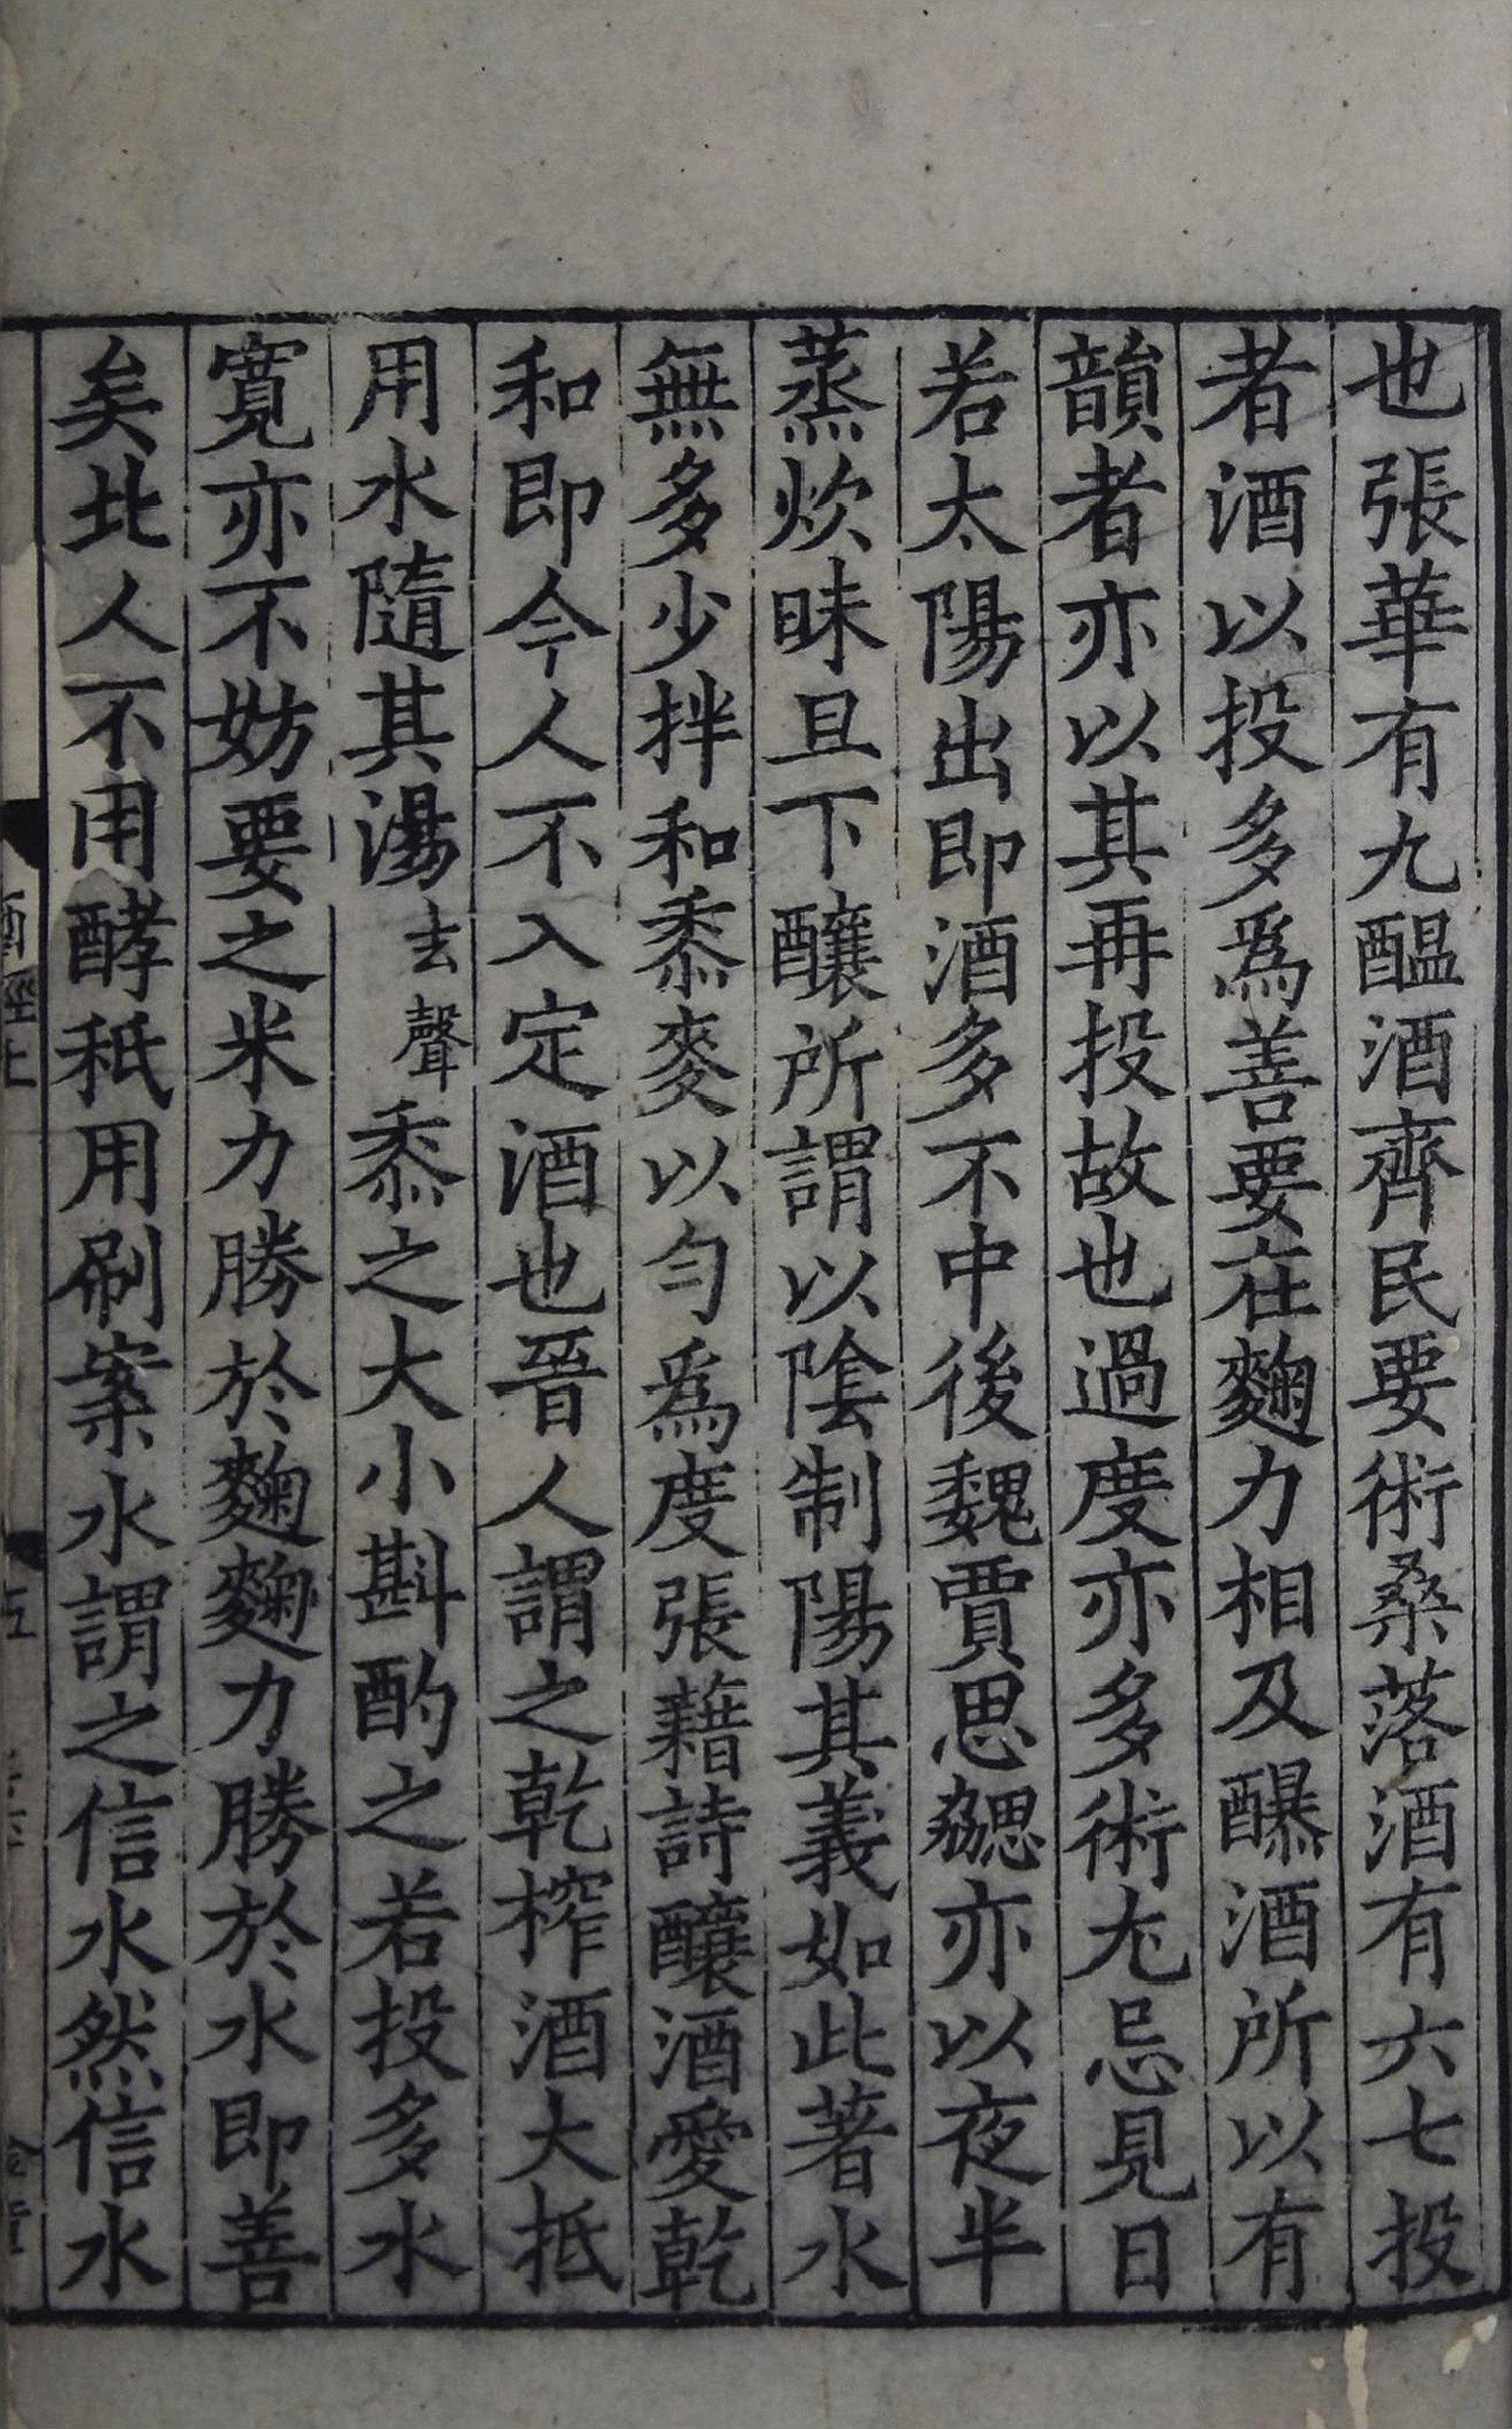 也張華有九醖酒齊民要術桑落酒有六七投
者酒以投多爲善要在麴力相及醲酒所以有
韻者亦以其再投故也過度亦多術尤忌見日
若太陽出即酒多不中後魏賈思勰亦以夜半
蒸炊昧旦下釀所謂以陰制陽其義如此著水
無多少拌和黍麥以勻爲度張藉詩釀酒愛乾
和即今人不入定酒也晉人謂之乾榨酒大抵
用水隨其湯去聲黍之大小斟酌之若投多水
寬亦不妨要之米力勝於麴麴力勝於水即善
矣北人不用酵秖用刷案水謂之信水然信水
酒經上